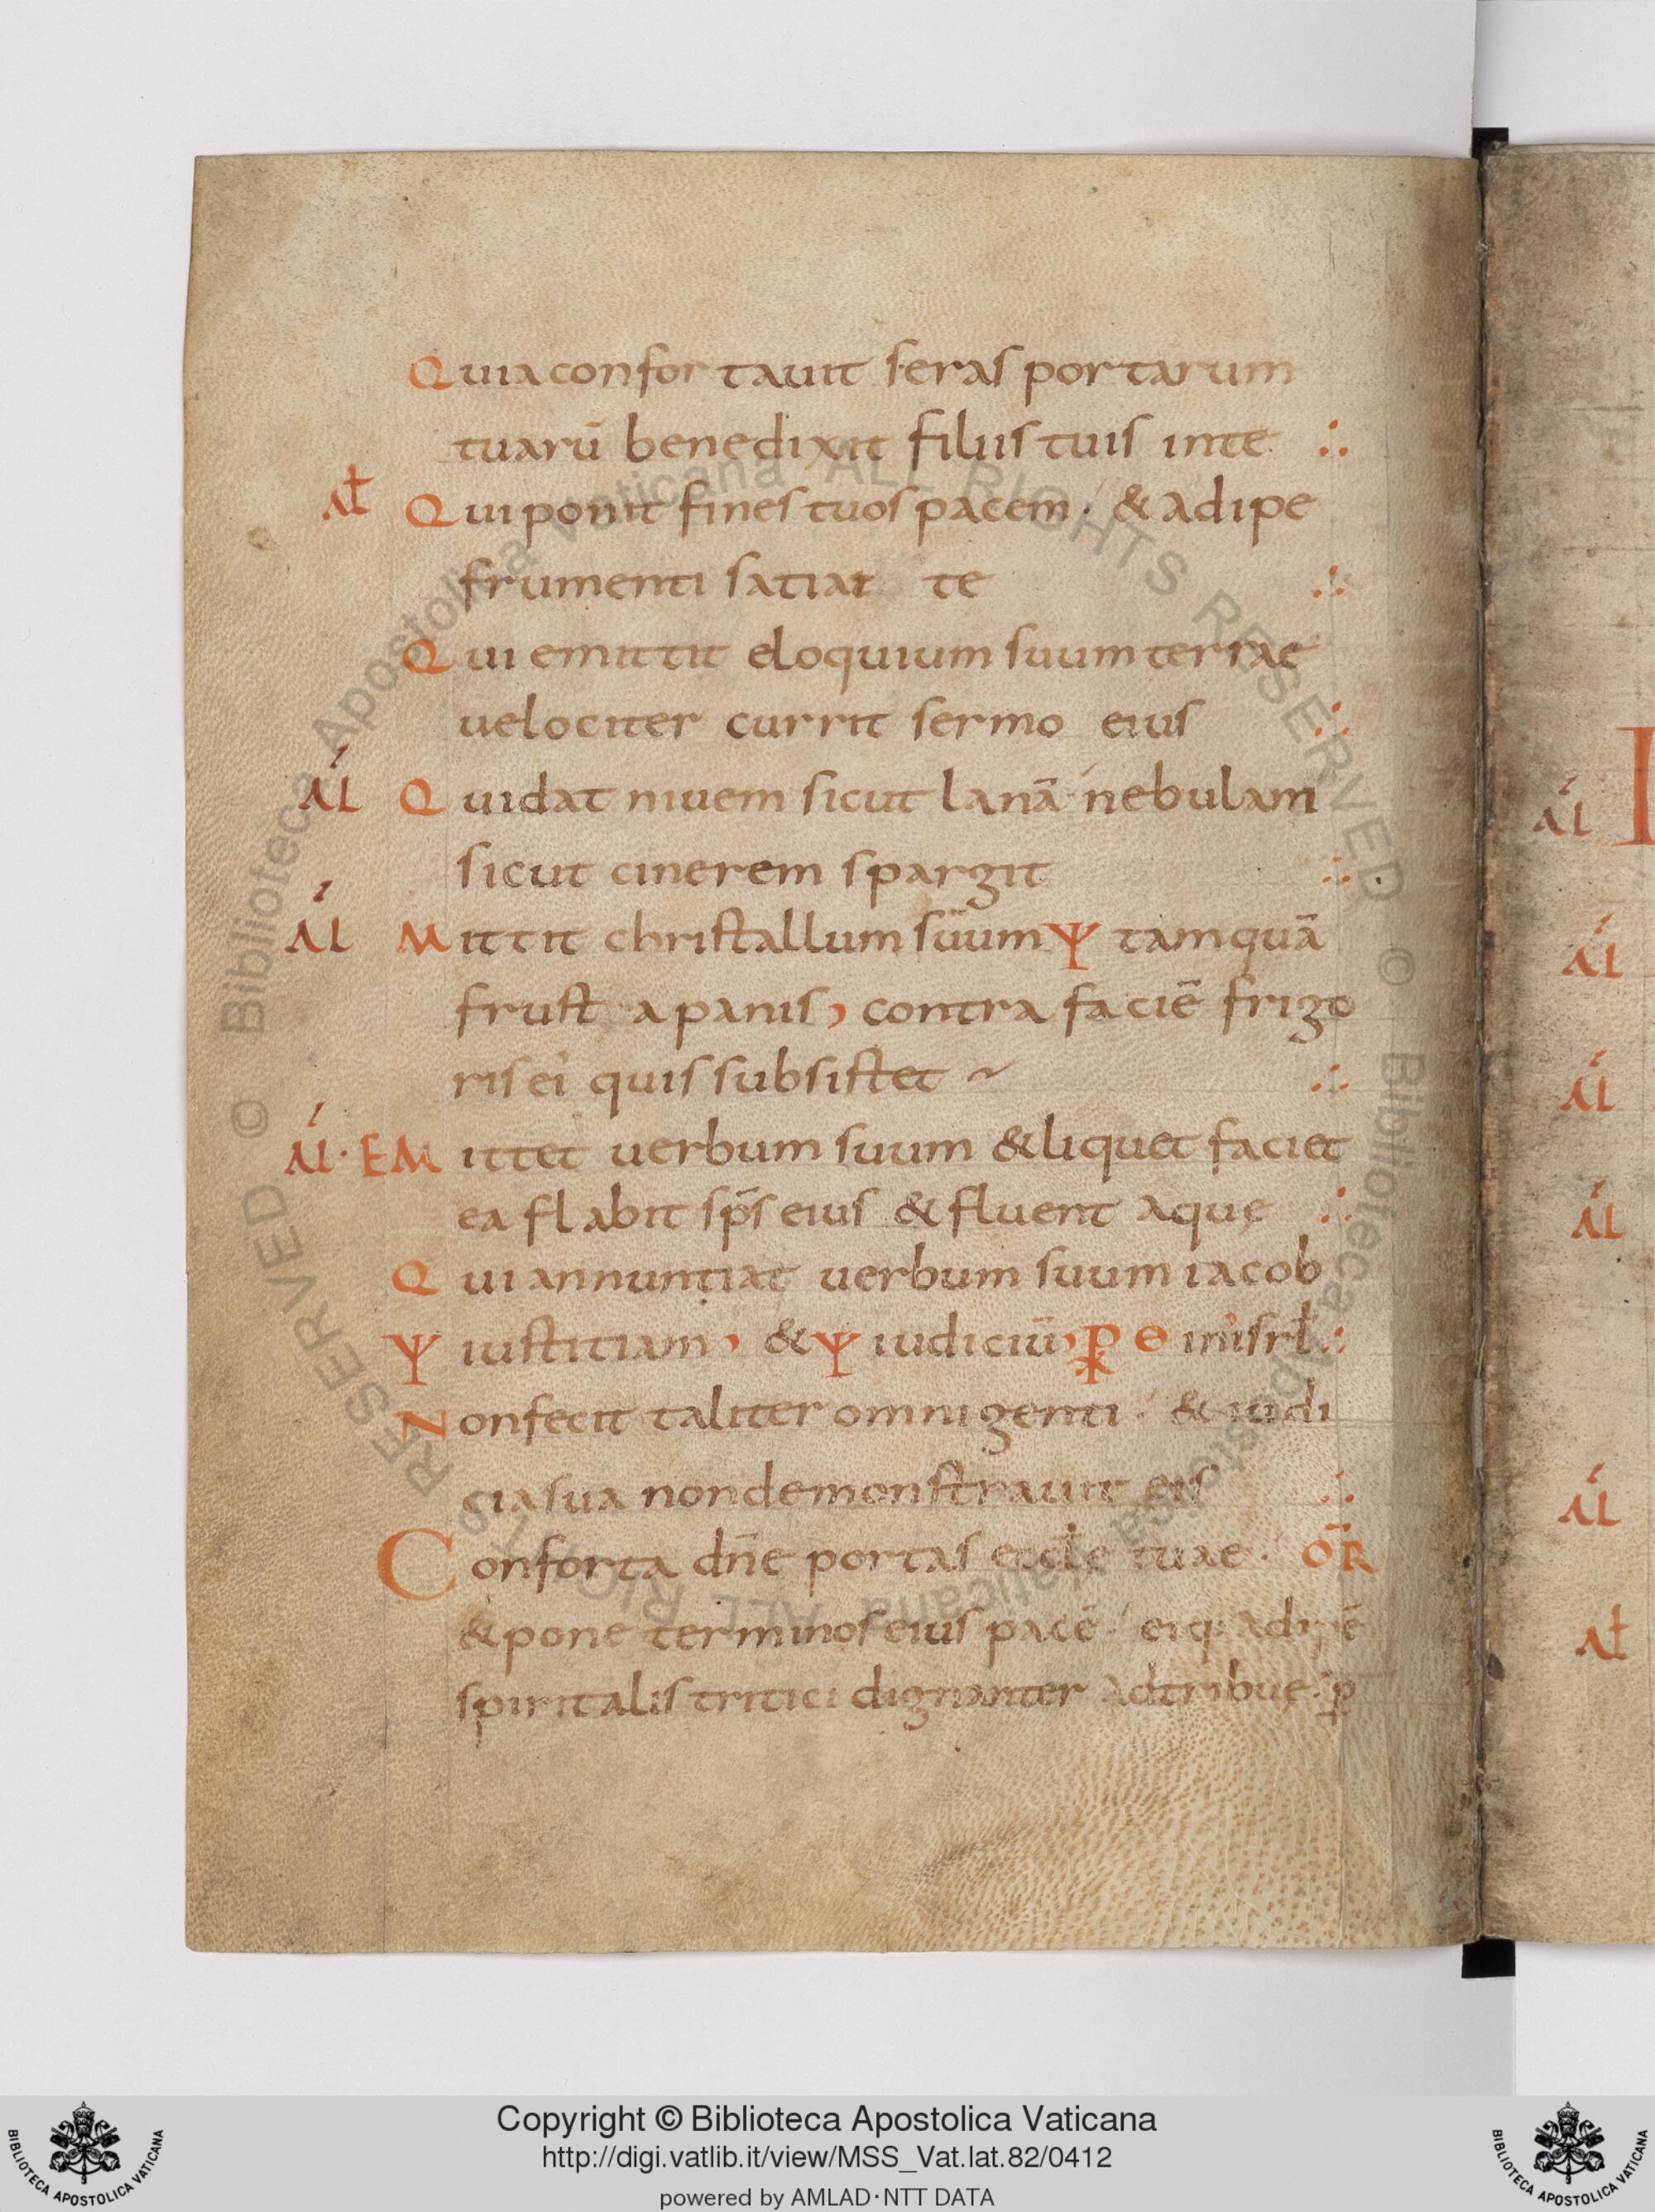 Quia confortauit seras portarum
tuarū benedixit filiis tuis in te ∴
At Qui ponit fines tuos pacem · & adipe
frumenti satiat te ∴
Qui emittit eloquium suum terrae
uelociter currit sermo eius ∴
Al Qui dat niuem sicut lanā nebulam
sicut cinerem spargit ∴
Al Mittit christallum suum Ψ tamquā
frusta panis, contra faciē frigo
ris ei quis subsistet ~ ∴
Al · EMittet uerbum suum & liquet faciet
ea flabit sp̄s eius & fluent aquę ∴
Qui annuntiat uerbum suum iacob
Ψ iustitiam, & Ψ iudiciū, ⳩ Θ in isrł ∴
Non fecit taliter omni genti · & iudi
cia sua non demonstrauit eis ∴
Conforta dn̄e portas eccłe tuae · ŌR
& pone terminos eius pacē · eiq: adipē
spiritalis tritici dignanter adtribue · p̱
Al
I
Al
Al
Al
Al
At
© Biblioteca Apostolica Vaticana ALL RIGHTS RESERVED © Biblioteca Apostolica Vaticana ALL RIGHTS RESERVED
Copyright © Biblioteca Apostolica Vaticana
http://digi.vatlib.it/view/MSS_Vat.lat.82/0412
powered by AMLAD·NTT DATA
BIBLIOTECA APOSTOLICA VATICANA
BIBLIOTECA APOSTOLICA VATICANA